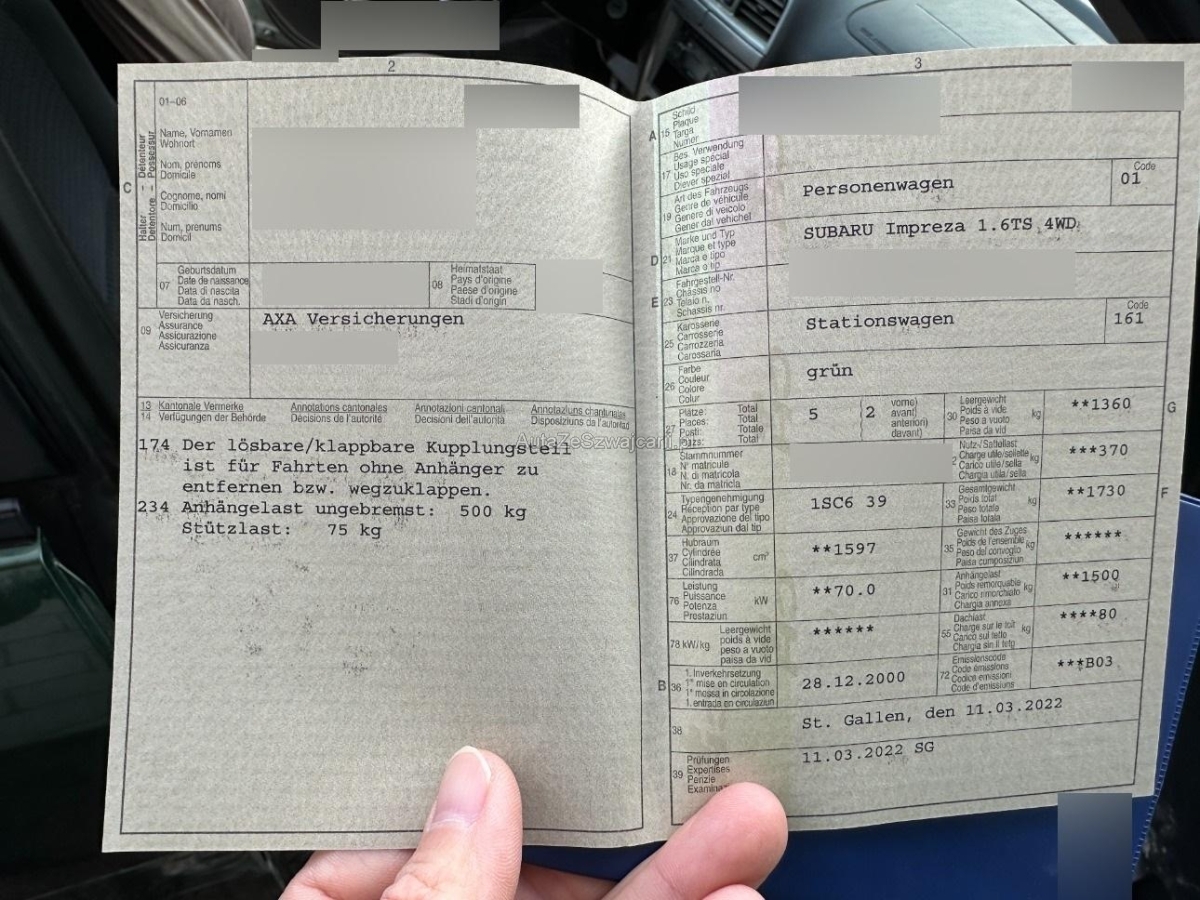 2
01–06
C
Halter – Détenteur
Detentore – Possessur
Name, Vornamen
Wohnort
Nom, prénoms
Domicile
Cognome, nomi
Domicilio
Num, prenums
Domicil
07
Geburtsdatum
Date de naissance
Data di nascita
Data da nasch.
08
Heimatstaat
Pays d'origine
Paese d'origine
Stadi d'origin
09
Versicherung
Assurance
Assicurazione
Assicuranza
AXA Versicherungen
13 Kantonale Vermerke
14 Verfügungen der Behörde
Annotations cantonales
Décisions de l'autorité
Annotazioni cantonali
Decisioni dell'autorità
Annotaziuns chantunalas
Disposiziuns da l'autoritad
174 Der lösbare/klappbare Kupplungsteil
ist für Fahrten ohne Anhänger zu
entfernen bzw. wegzuklappen.
234 Anhängelast ungebremst: 500 kg
Stützlast: 75 kg
AutaZeSzwajcarii
3
A 15
Schild
Plaque
Targa
Numer
17
Bes. Verwendung
Usage spécial
Uso speciale
Diever spezial
19
Art des Fahrzeugs
Genre de véhicule
Genere di veicolo
Gener dal vehichel
Personenwagen
Code
01
D 21
Marke und Typ
Marque et type
Marca e tipo
Marca e tip
SUBARU Impreza 1.6TS 4WD
E 23
Fahrgestell-Nr.
Châssis no
Telaio n.
Schassis nr.
25
Karosserie
Carrosserie
Carrozzeria
Carossaria
Stationswagen
Code
161
26
Farbe
Couleur
Colore
Colur
grün
27
Plätze: Total
Places: Total
Posti: Totale
Plazs: Total
5
2
vorne)
avant)
anteriori)
davant)
30
Leergewicht
Poids à vide
Peso a vuoto
Paisa da vid
kg
**1360
G
18
Stammnummer
N° matricule
N. di matricola
Nr. da matricla
Nutz-/Sattellast
Charge utile/sellette
Carico utile/sella
Chargia utila/sella
kg
***370
24
Typengenehmigung
Réception par type
Approvazione del tipo
Approvaziun dal tip
1SC6 39
33
Gesamtgewicht
Poids total
Peso totale
Paisa totala
kg
**1730
F
37
Hubraum
Cylindrée
Cilindrata
Cilindrada
cm³
**1597
35
Gewicht des Zuges
Poids de l'ensemble
Peso del convoglio
Paisa cumposiziun
kg
******
76
Leistung
Puissance
Potenza
Prestaziun
kW
**70.0
31
Anhängelast
Poids remorquable
Carico rimorchiato
Chargia annexa
kg
**1500
78 kW/kg
Leergewicht
poids à vide
peso a vuoto
paisa da vid
******
55
Dachlast
Charge sur le toit
Carico sul tetto
Chargia sin il tetg
kg
****80
B 36
1. Inverkehrsetzung
1re mise en circulation
1a messa in circolazione
1. entrada en circulaziun
28.12.2000
72
Emissionscode
Code émissions
Codice emissioni
Code d'emissiuns
***B03
38
St. Gallen, den 11.03.2022
39
Prüfungen
Expertises
Perizie
11.03.2022 SG